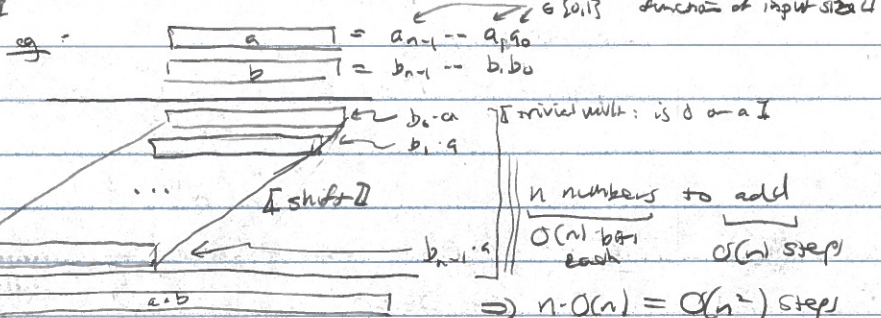 ∈ {0,1} function of input size
eg: a = a_{n-1} -- a_1 a_0
b = b_{n-1} -- b_1 b_0
b_0·a ⟦trivial mult: is 0 or a⟧
b_1·a
...
⟦shift⟧ n numbers to add
b_{n-1}·a O(n) bits each O(n) steps
a·b ⇒ n·O(n) = O(n²) steps